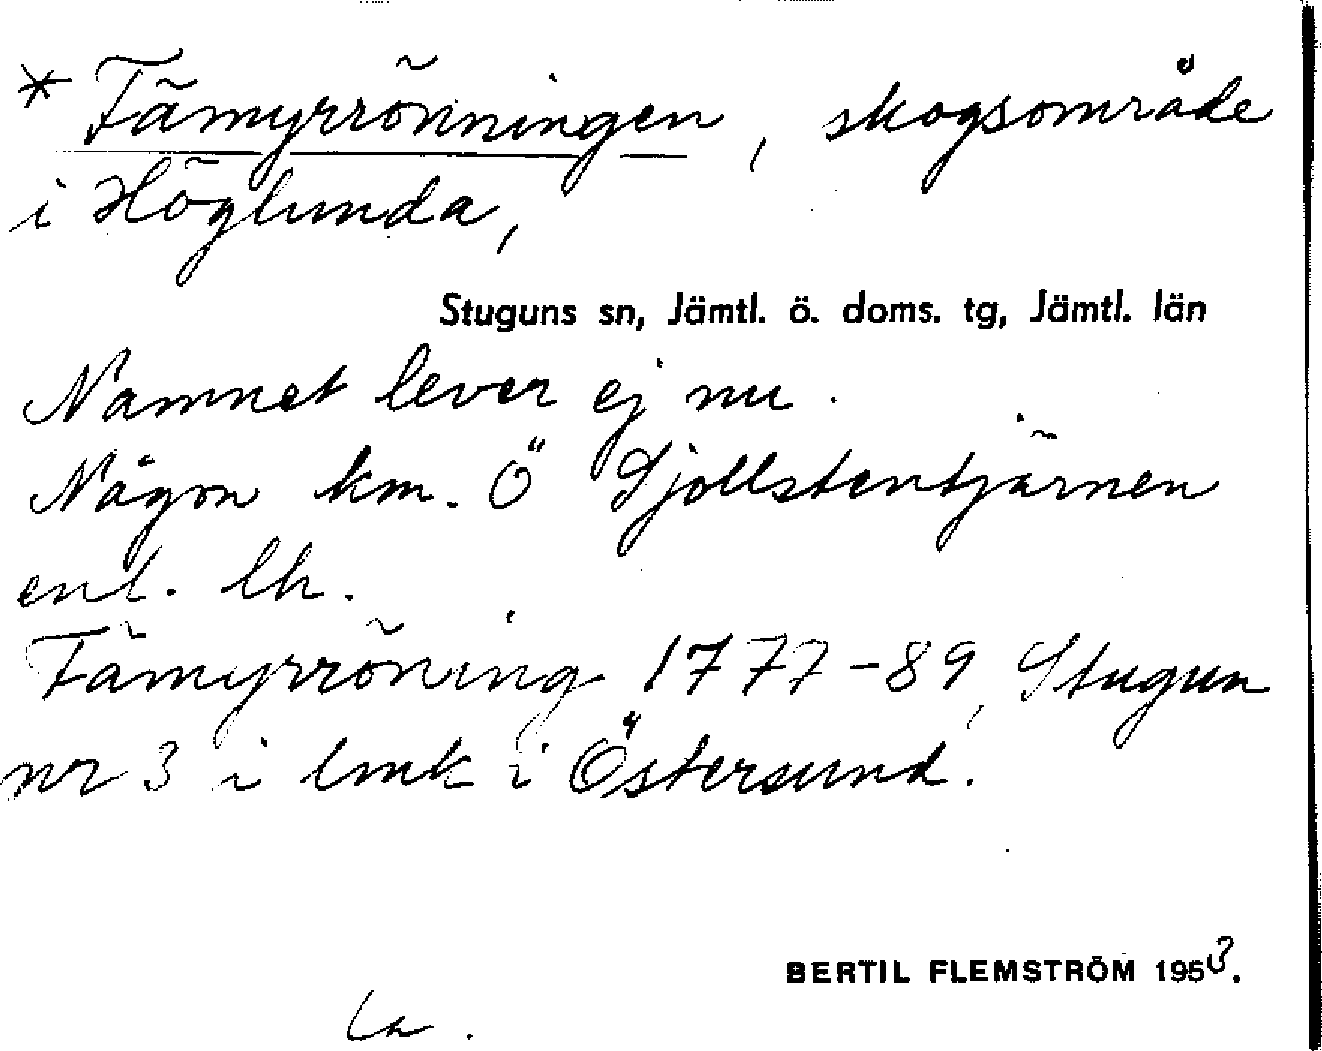 * Fämyrrönningen, skogsområde
i Höglunda,
Stuguns sn, Jämtl. ö. doms. tg, Jämtl. län
Namnet lever ej nu.
Någon km. Ö Sjollstentjärnen
enl. lh.
Fämyrröning 1777-89, Stugun
nr 3 i lmk i Östersund.
BERTIL FLEMSTRÖM 1953.